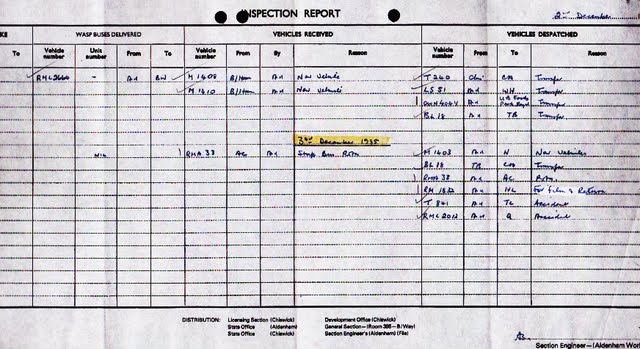 INSPECTION REPORT
2nd December
KE WASP BUSES DELIVERED VEHICLES RECEIVED VEHICLES DESPATCHED
To Vehicle number Unit number From To Vehicle number From By Reason Vehicle number From To Reason
RML2660 - An BW M 1408 B/Ham An New Vehicle T 260 CA Transfer
M 1410 B/Ham An New Vehicle LS 31 An WH Transfer
An Transfer
BL 18 An TB Transfer
3rd December 1985
NIL RMA 33 AC An M 1403 An N New Vehicles
BL 18 TB CA Transfer
RMA 33 An AC Rtn.
An NL For Film & Return
T 841 An TL Accident
An Q Accident
DISTRIBUTION: Licensing Section (Chiswick) Development Office (Chiswick)
State Office (Aldenham) General Section—(Room 395 - B/Way)
State Office (Chiswick) Section Engineer's (Aldenham) (File)
Section Engineer—(Aldenham Wor